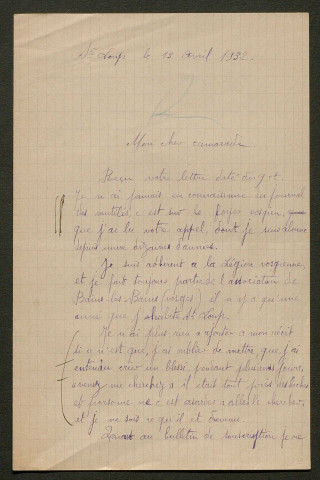 St Loup le 12 avril 1932
Mon cher camarade
Reçu votre lettre
Je n ai jamais eu connaissance du journal
des mutilés, c est sur le
que j'ai lu votre appel, dont je suis abonné
depuis une dizaine d'années.
Je suis adhérent a la Légion vosgienne
et je fait toujours partie de l'association de
Bains les Bains (vosges) il n y a qu une
année que j'habite St Loup.
Je n ai plus rien a ajouter a mon récit
si ce n est que, j'ai oublié de mettre, que j'ai
entendu crier un blessé, pendant plusieurs jours,
venez me cherchez, il était tout près des boches
et personne ne c est asardé a allé le chercher,
et je ne sais ce qu'il est devenu
Quant au bulletin de souscription je ne